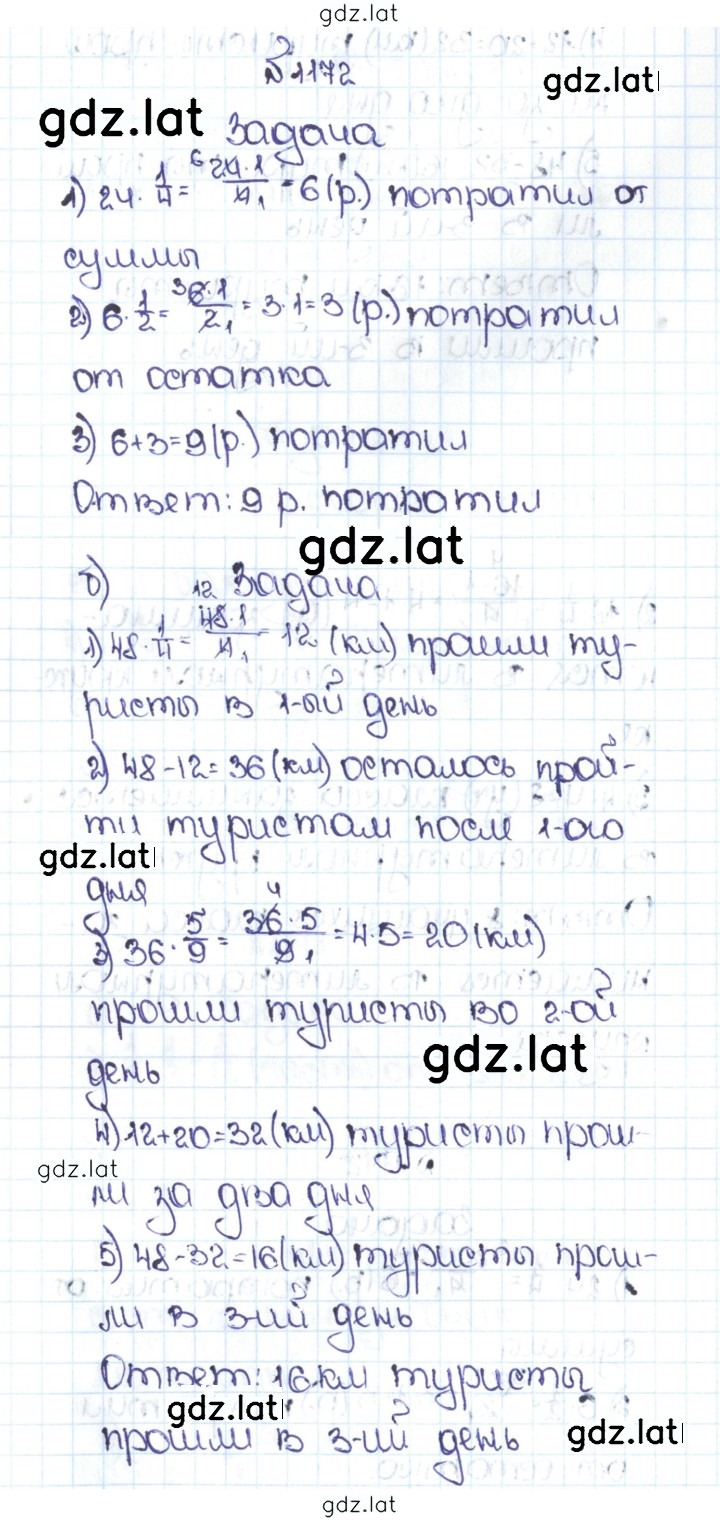 gdz.lat
№ 1172
gdz.lat
gdz.lat
Задача
1) 24 · 1/4 = 24·1/4 = 6 (р.) потратил от
6 1
суммы
2) 6 · 1/2 = 6·1/2 = 3·1=3 (р.) потратил
3 1
от остатка
3) 6+3=9(р.) потратил
Ответ: 9 р. потратил
gdz.lat
б) Задача
12
1) 48 · 1/4 = 48·1/4 = 12 (км) прошли ту-
1
ристы в 1-ый день
2) 48-12=36(км) осталось прой-
ти туристам после 1-ого
gdz.lat
дня
4
3) 36 · 5/9 = 36·5/9 = 4·5=20(км)
1
прошли туристы во 2-ой
gdz.lat
день
4) 12+20=32(км) туристы прош-
gdz.lat
ли за два дня
5) 48-32=16(км) туристы прош-
ли в 3-ий день
Ответ: 16 км туристы
gdz.lat
прошли в 3-ий день
gdz.lat
gdz.lat